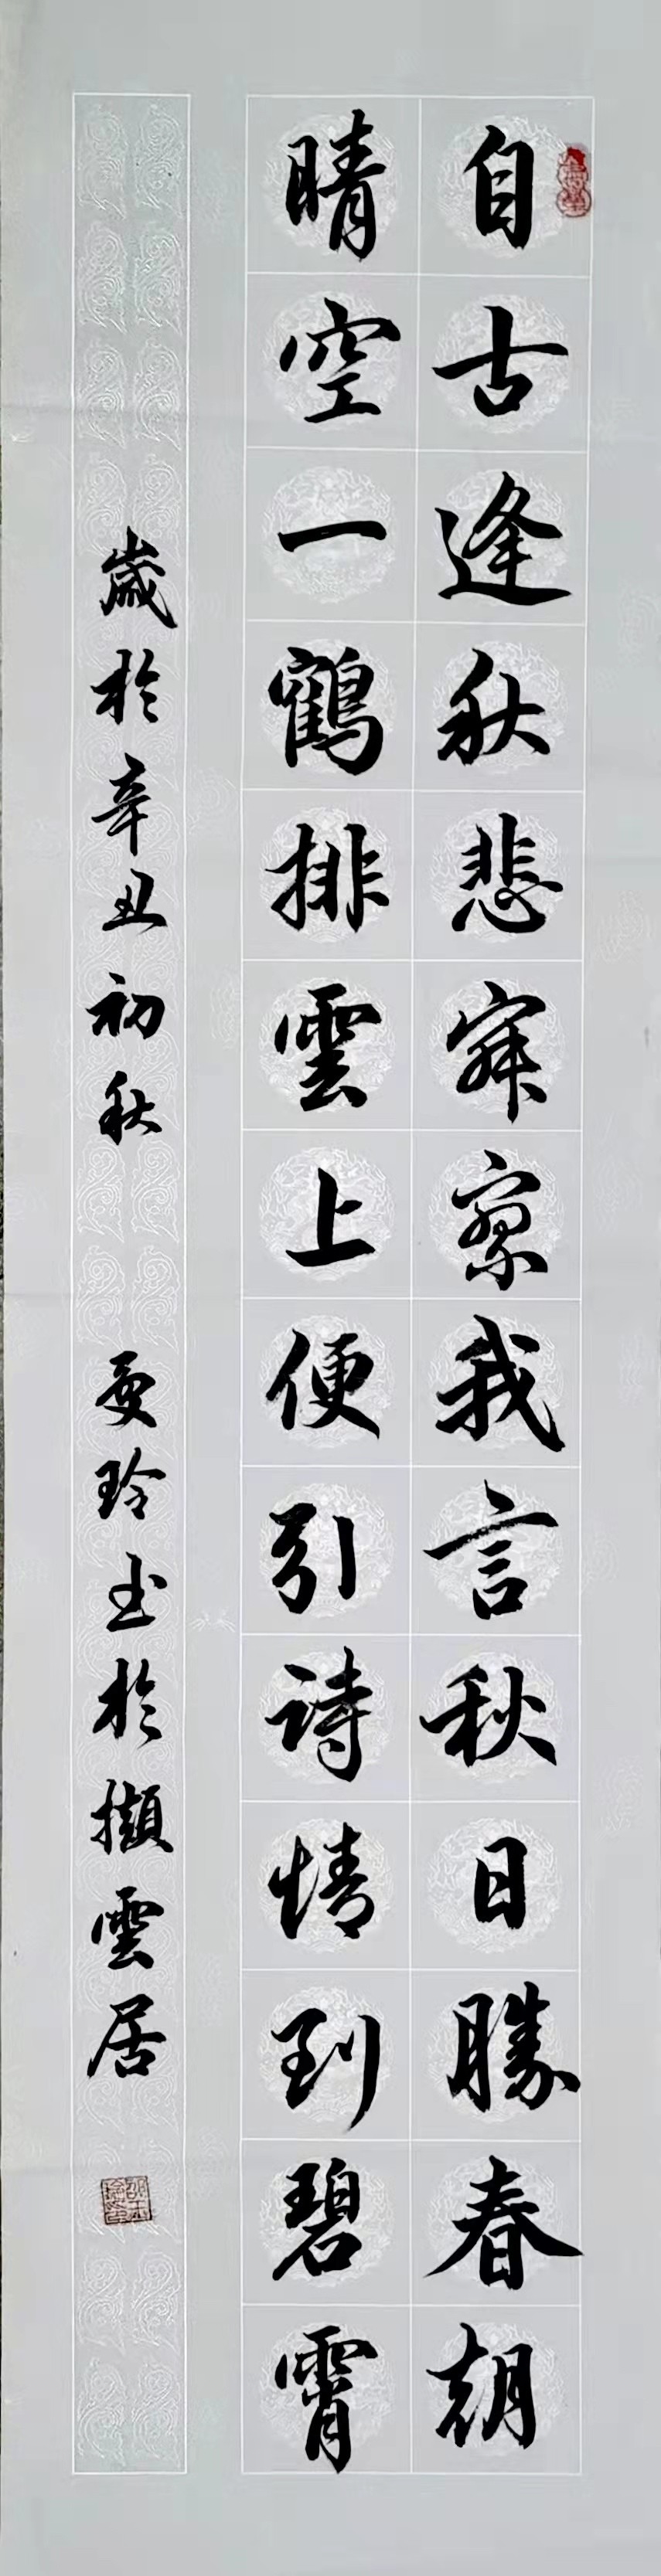 自古逢秋悲寂寥我言秋日勝春朝
晴空一鶴排雲上便引詩情到碧霄
歲於辛丑初秋 玲书於擷雲居